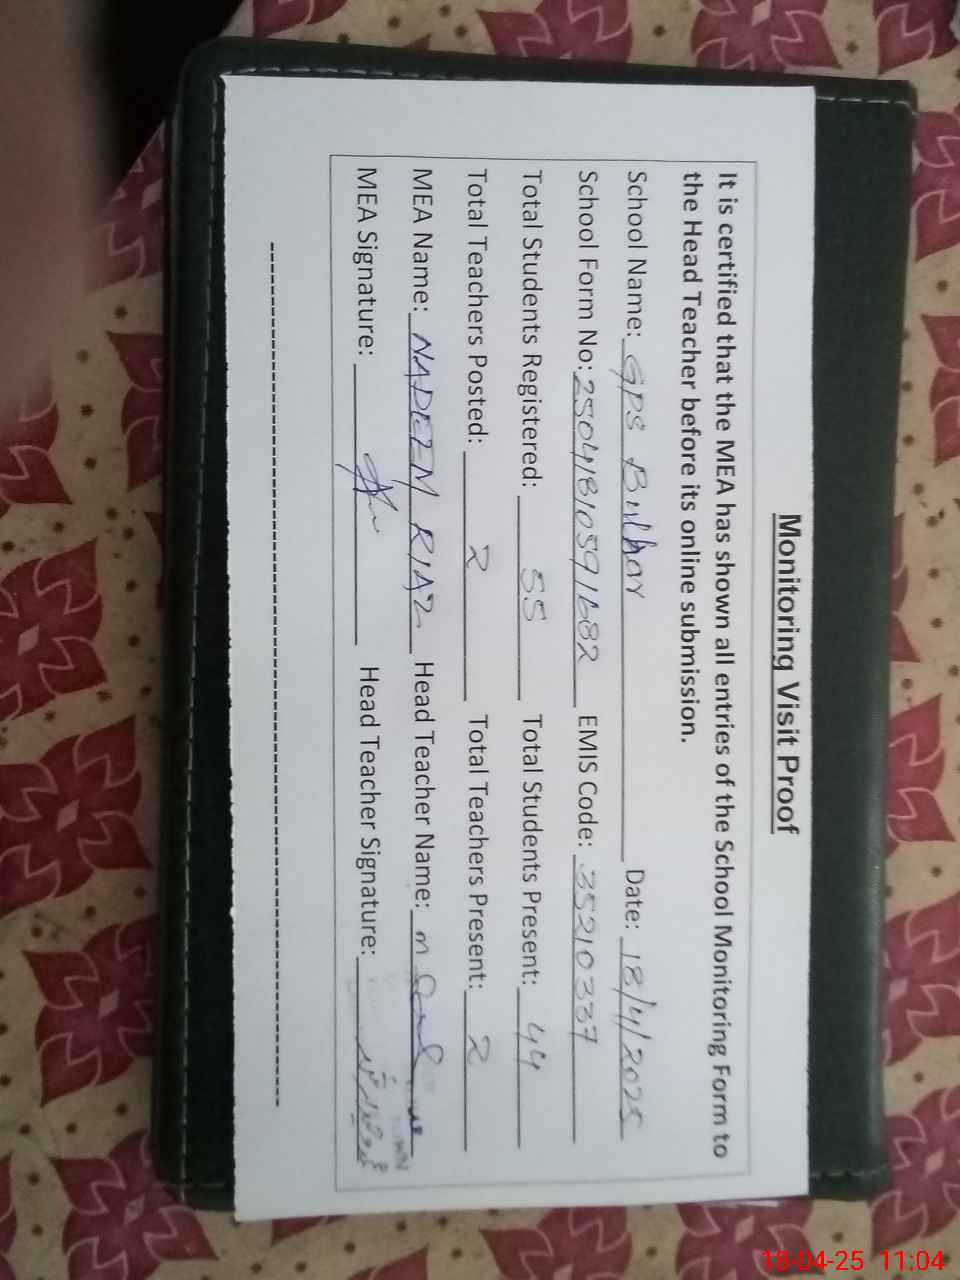 Monitoring Visit Proof
It is certified that the MEA has shown all entries of the School Monitoring Form to
the Head Teacher before its online submission.
School Name: GPS Bulhar Date: 18/4/2025
School Form No: 25041810591682 EMIS Code: 35210337
Total Students Registered: 55 Total Students Present: 44
Total Teachers Posted: 2 Total Teachers Present: 2
MEA Name: NADEEM RIAZ Head Teacher Name: m
MEA Signature: Head Teacher Signature:
18-04-25 11:04